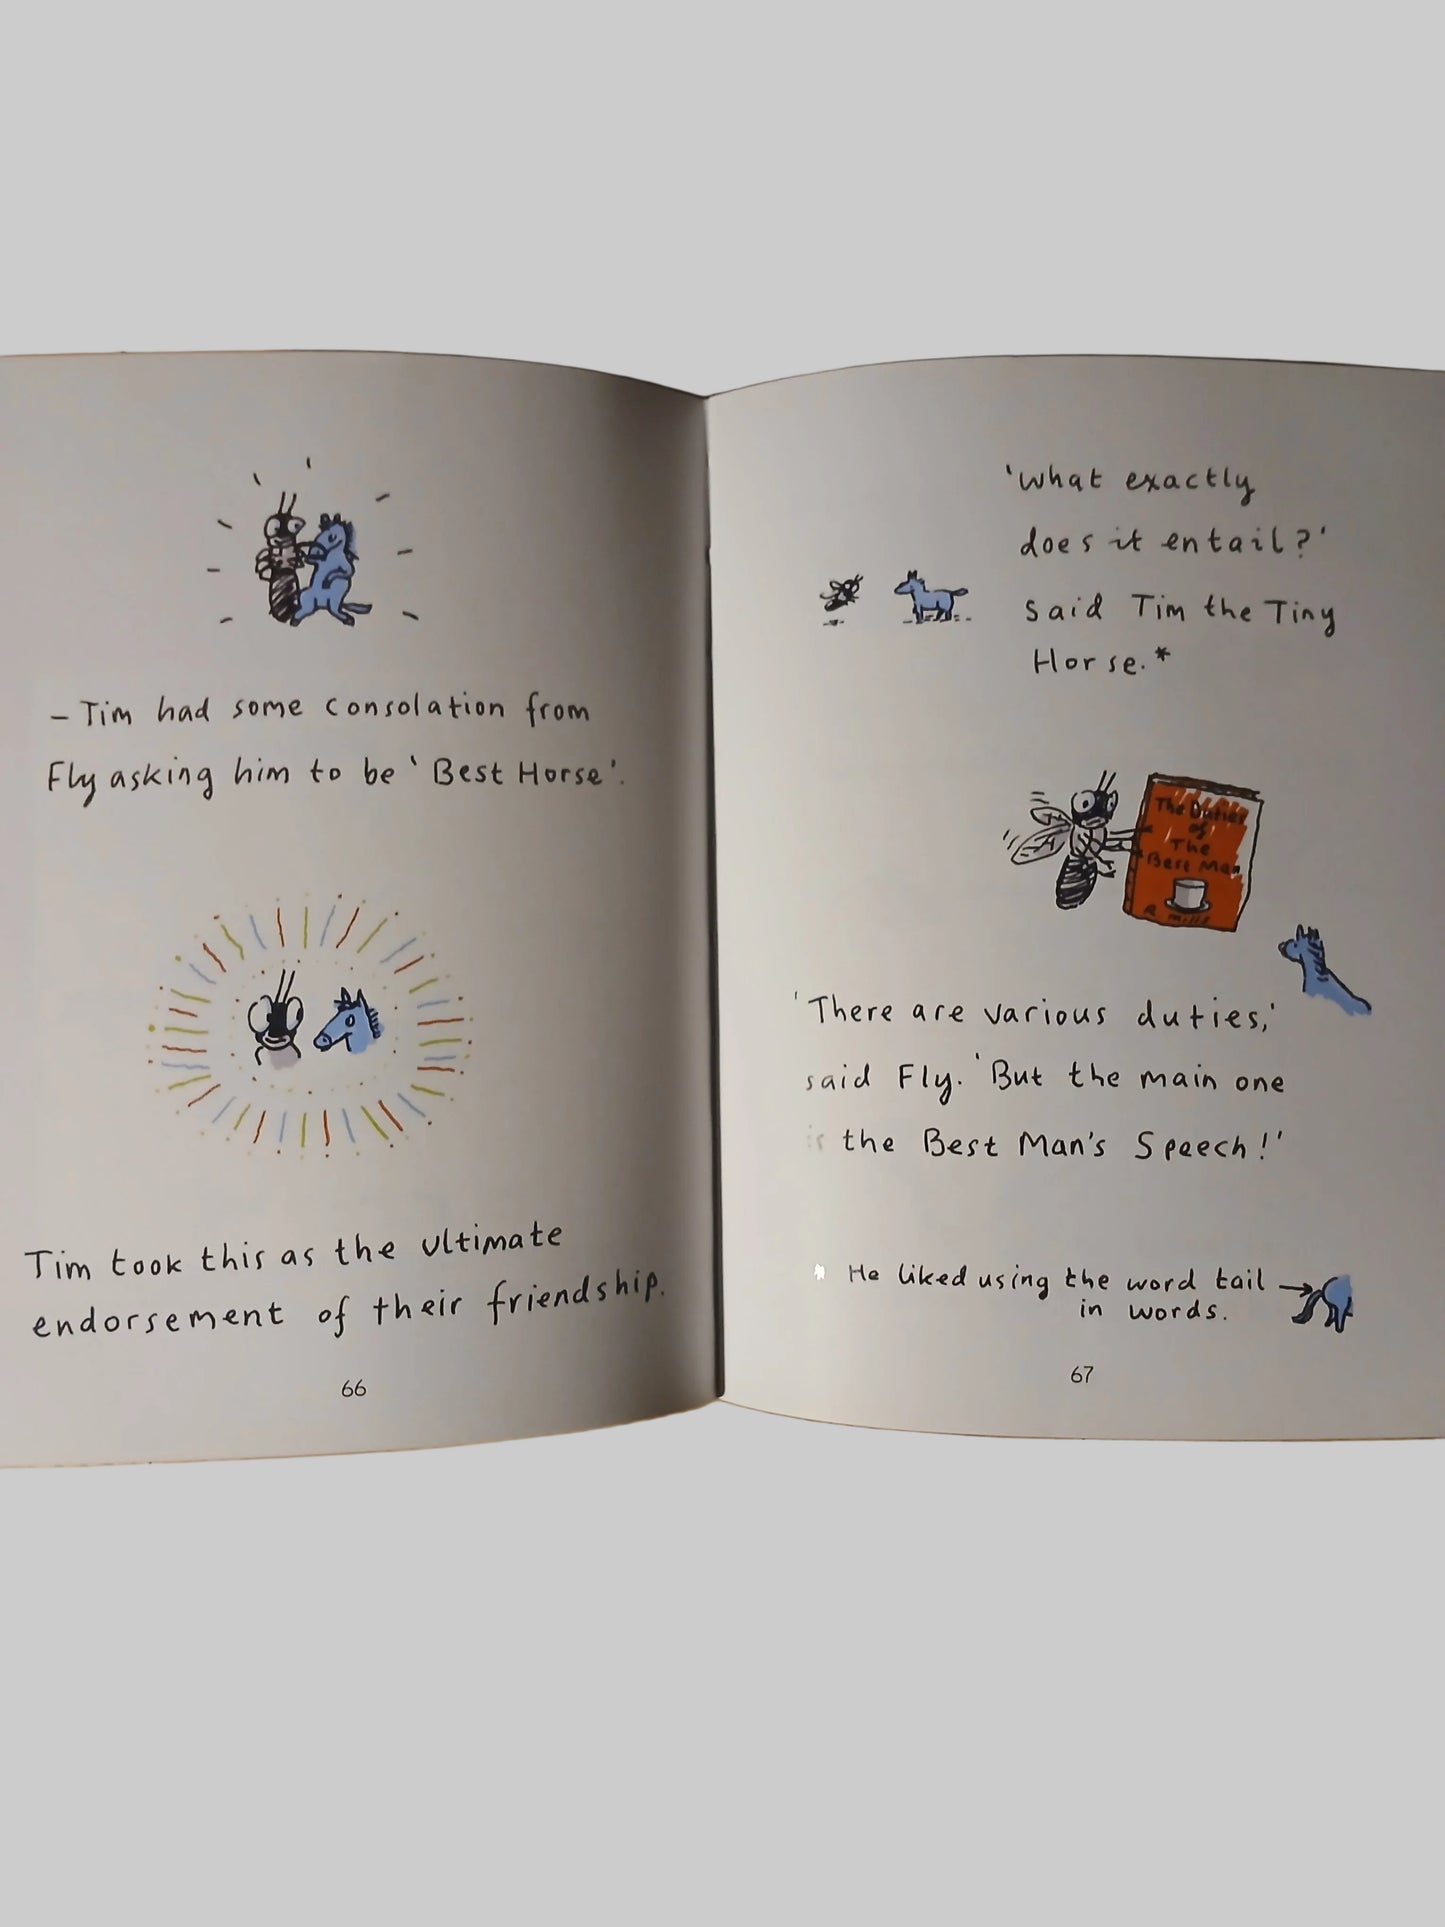 – Tim had some consolation from
Fly asking him to be 'Best Horse'.
Tim took this as the ultimate
endorsement of their friendship.
66
'What exactly
does it entail?'
said Tim the Tiny
Horse.*
The Duties
of
The
Best Man
R. Mills
'There are various duties,'
said Fly. 'But the main one
is the Best Man's Speech!'
* He liked using the word tail →
in words.
67